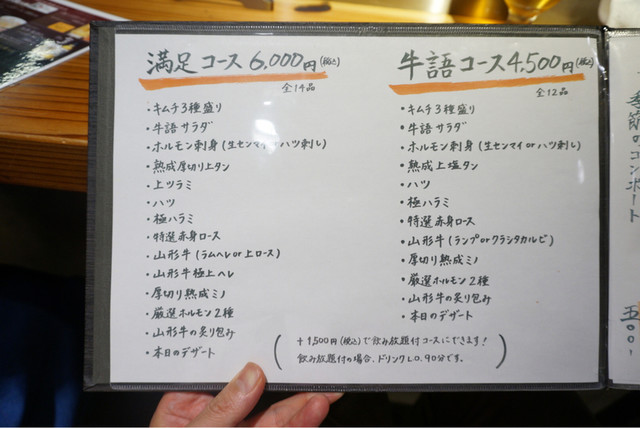 満足コース 6,000円(税込)
全14品
・キムチ3種盛り
・牛語サラダ
・ホルモン刺身(生センマイorハツ刺し)
・熟成厚切り上タン
・上ツラミ
・ハツ
・極ハラミ
・特選赤身ロース
・山形牛(ラムヘレor上ロース)
・山形牛極上ヘレ
・厚切り熟成ミノ
・厳選ホルモン2種
・山形牛の炙り包み
・本日のデザート
牛語コース4,500円(税込)
全12品
・キムチ3種盛り
・牛語サラダ
・ホルモン刺身(生センマイorハツ刺し)
・熟成上塩タン
・ハツ
・極ハラミ
・特選赤身ロース
・山形牛(ランプorクラシタカルビ)
・厚切り熟成ミノ
・厳選ホルモン2種
・山形牛の炙り包み
・本日のデザート
(+1,500円(税込)で飲み放題付コースにできます!
飲み放題付の場合、ドリンクLO.90分です。)
季節のコンポート
五〇〇